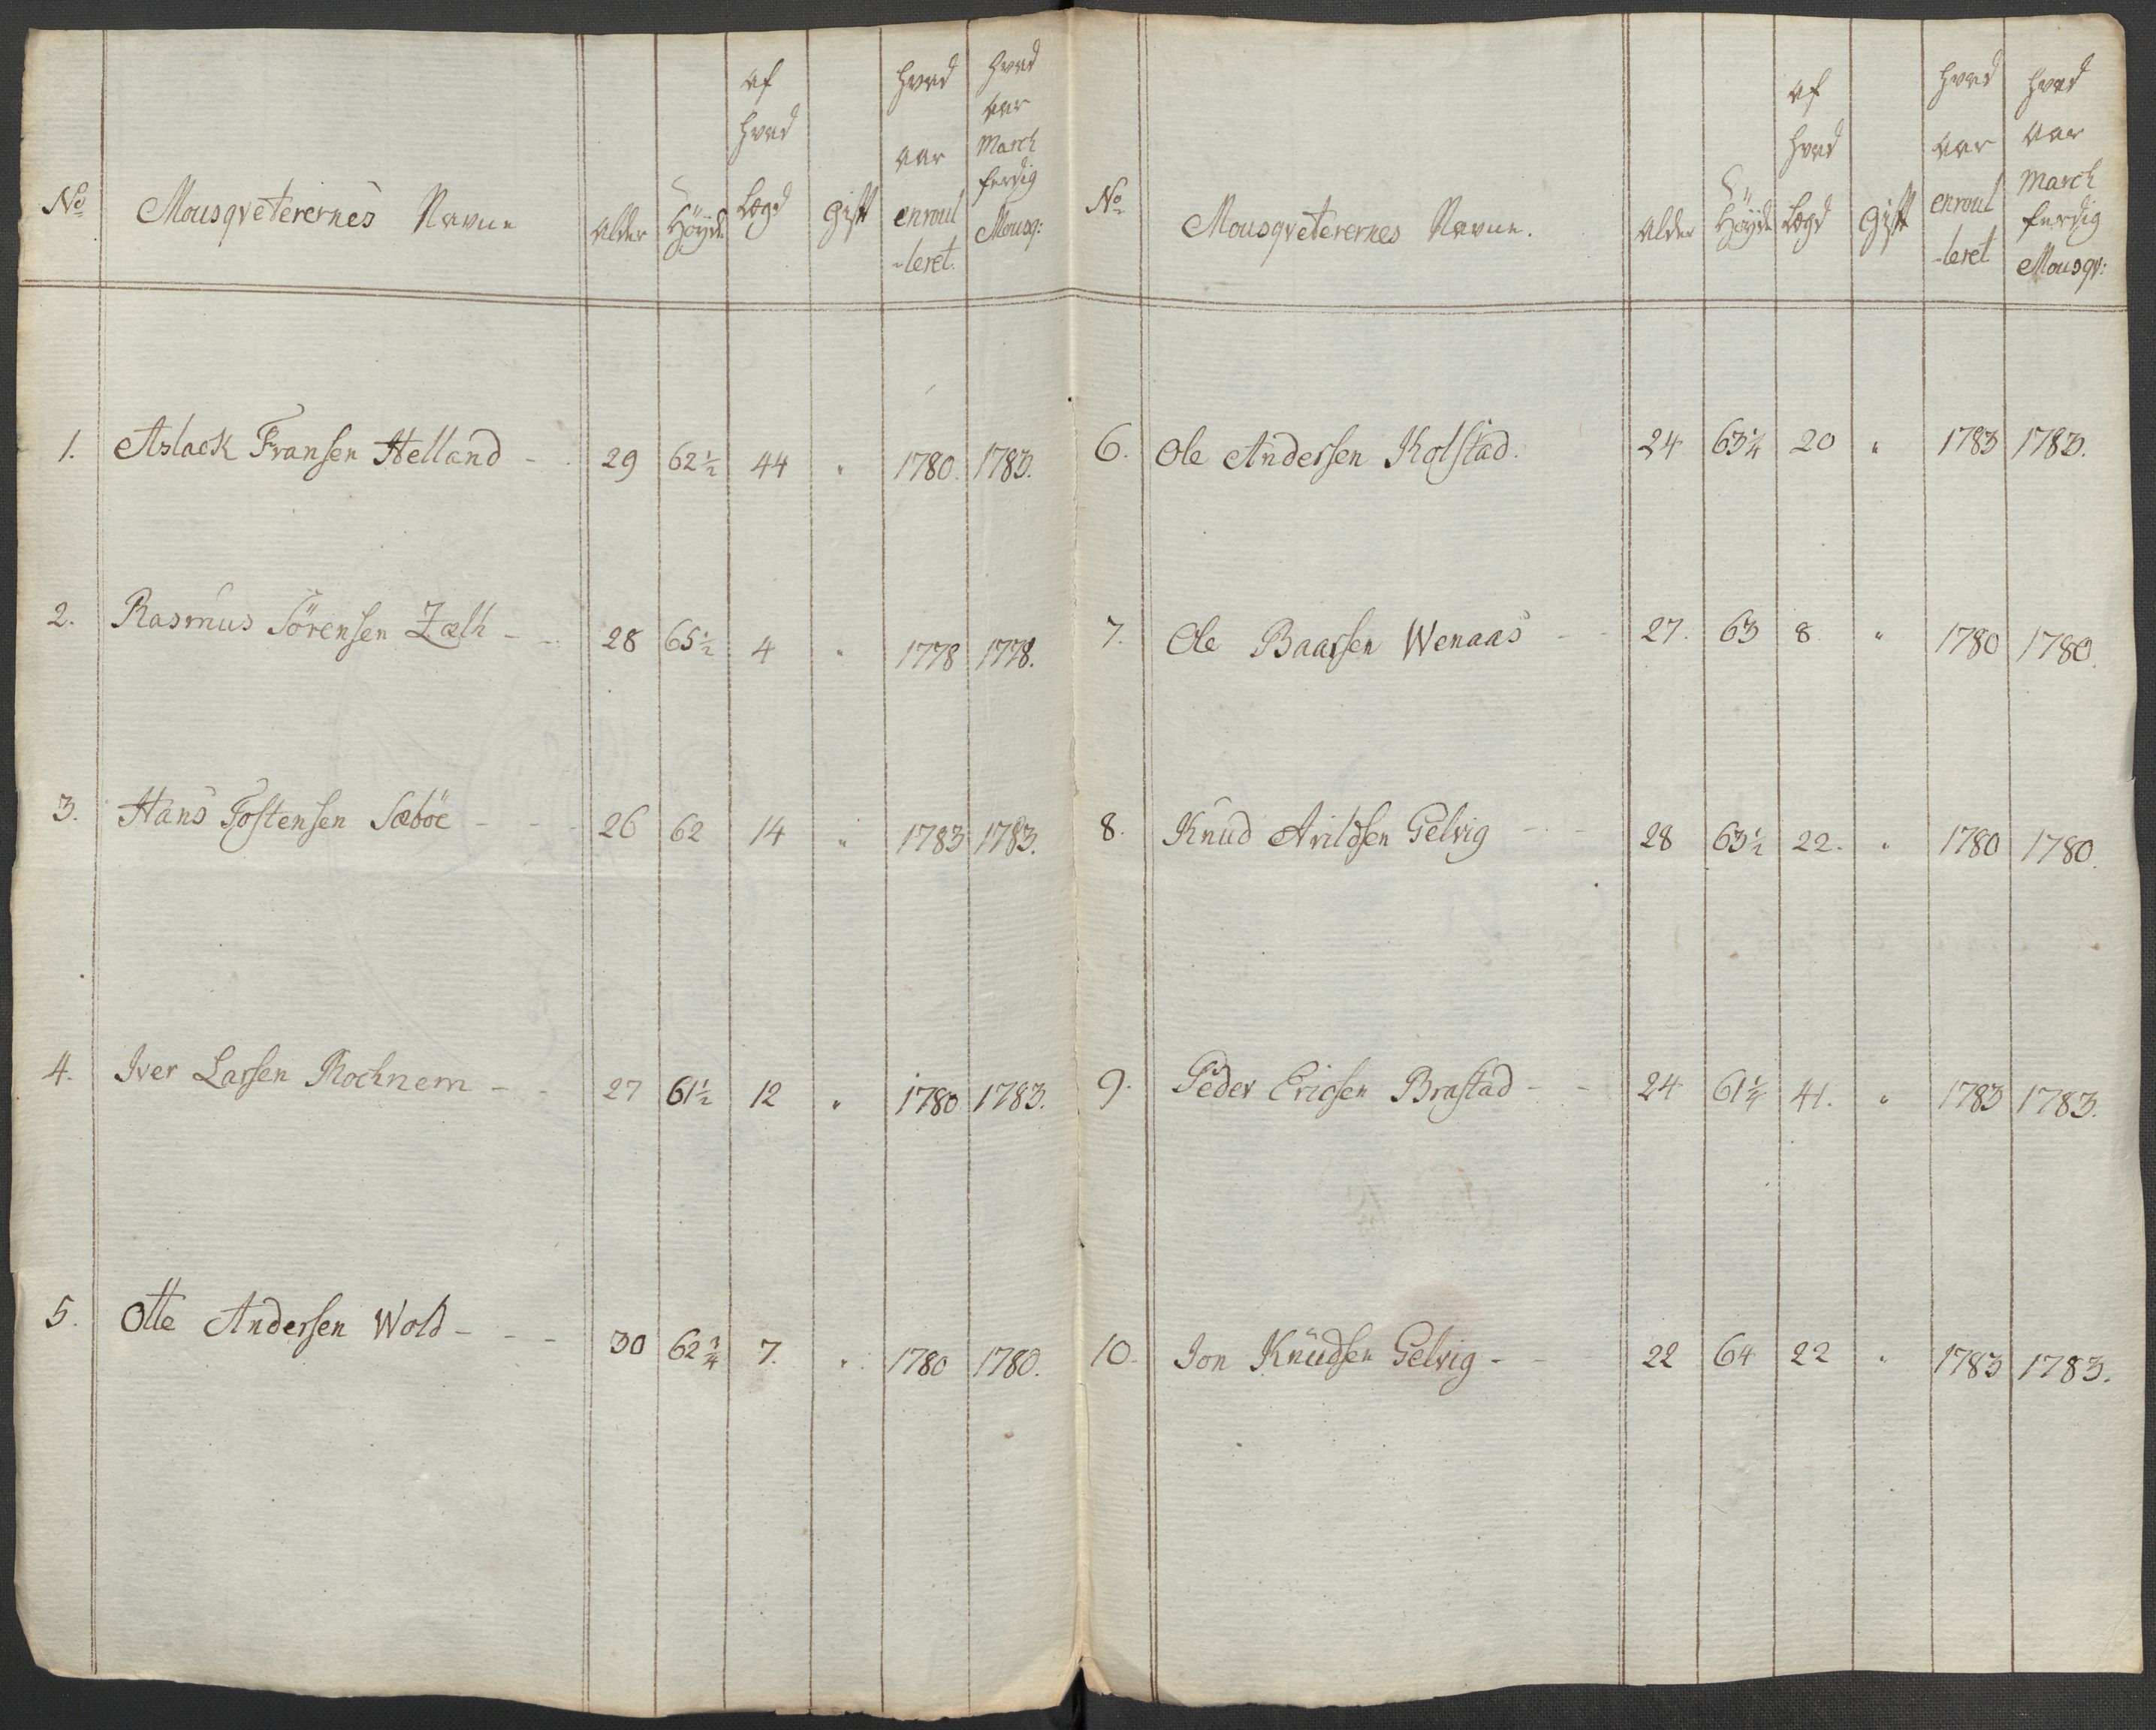 No Mousqveterernes Navne alder Höyde af hvad Lægd gift hvad aar enroulleret hvad aar March ferdig Mousq:
1. Aslack Fransen Helland - 29 62½ 44 " 1780. 1783.
2. Rasmus Sörensen - - 28 65½ 4 " 1778 1778.
3. Hans Tostensen Sæböe - - - 26 62 14 " 1783 1783.
4. Iver Larsen Rochnem - - 27 61½ 12 " 1780 1783.
5. Otte Andersen Wold - - - 30 62¾ 7. " 1780 1780.
No Mousqveterernes Navne. alder Höyde af hvad Lægd gift hvad aar enroul-leret hvad aar March ferdig Mousqv:
6. Ole Andersen Kolstad. 24 63¼ 20 " 1783 1783.
7. Ole Baarsen Wenaas - - 27. 63 8 " 1780 1780.
8. Knud Arildsen Gelvig - - 28 63½ 22. " 1780 1780.
9. Peder Ericsen Brastad - - 24 61¼ 41. " 1783 1783.
10. Jon Knudsen Gelvig - - 22 64 22 " 1783 1783.